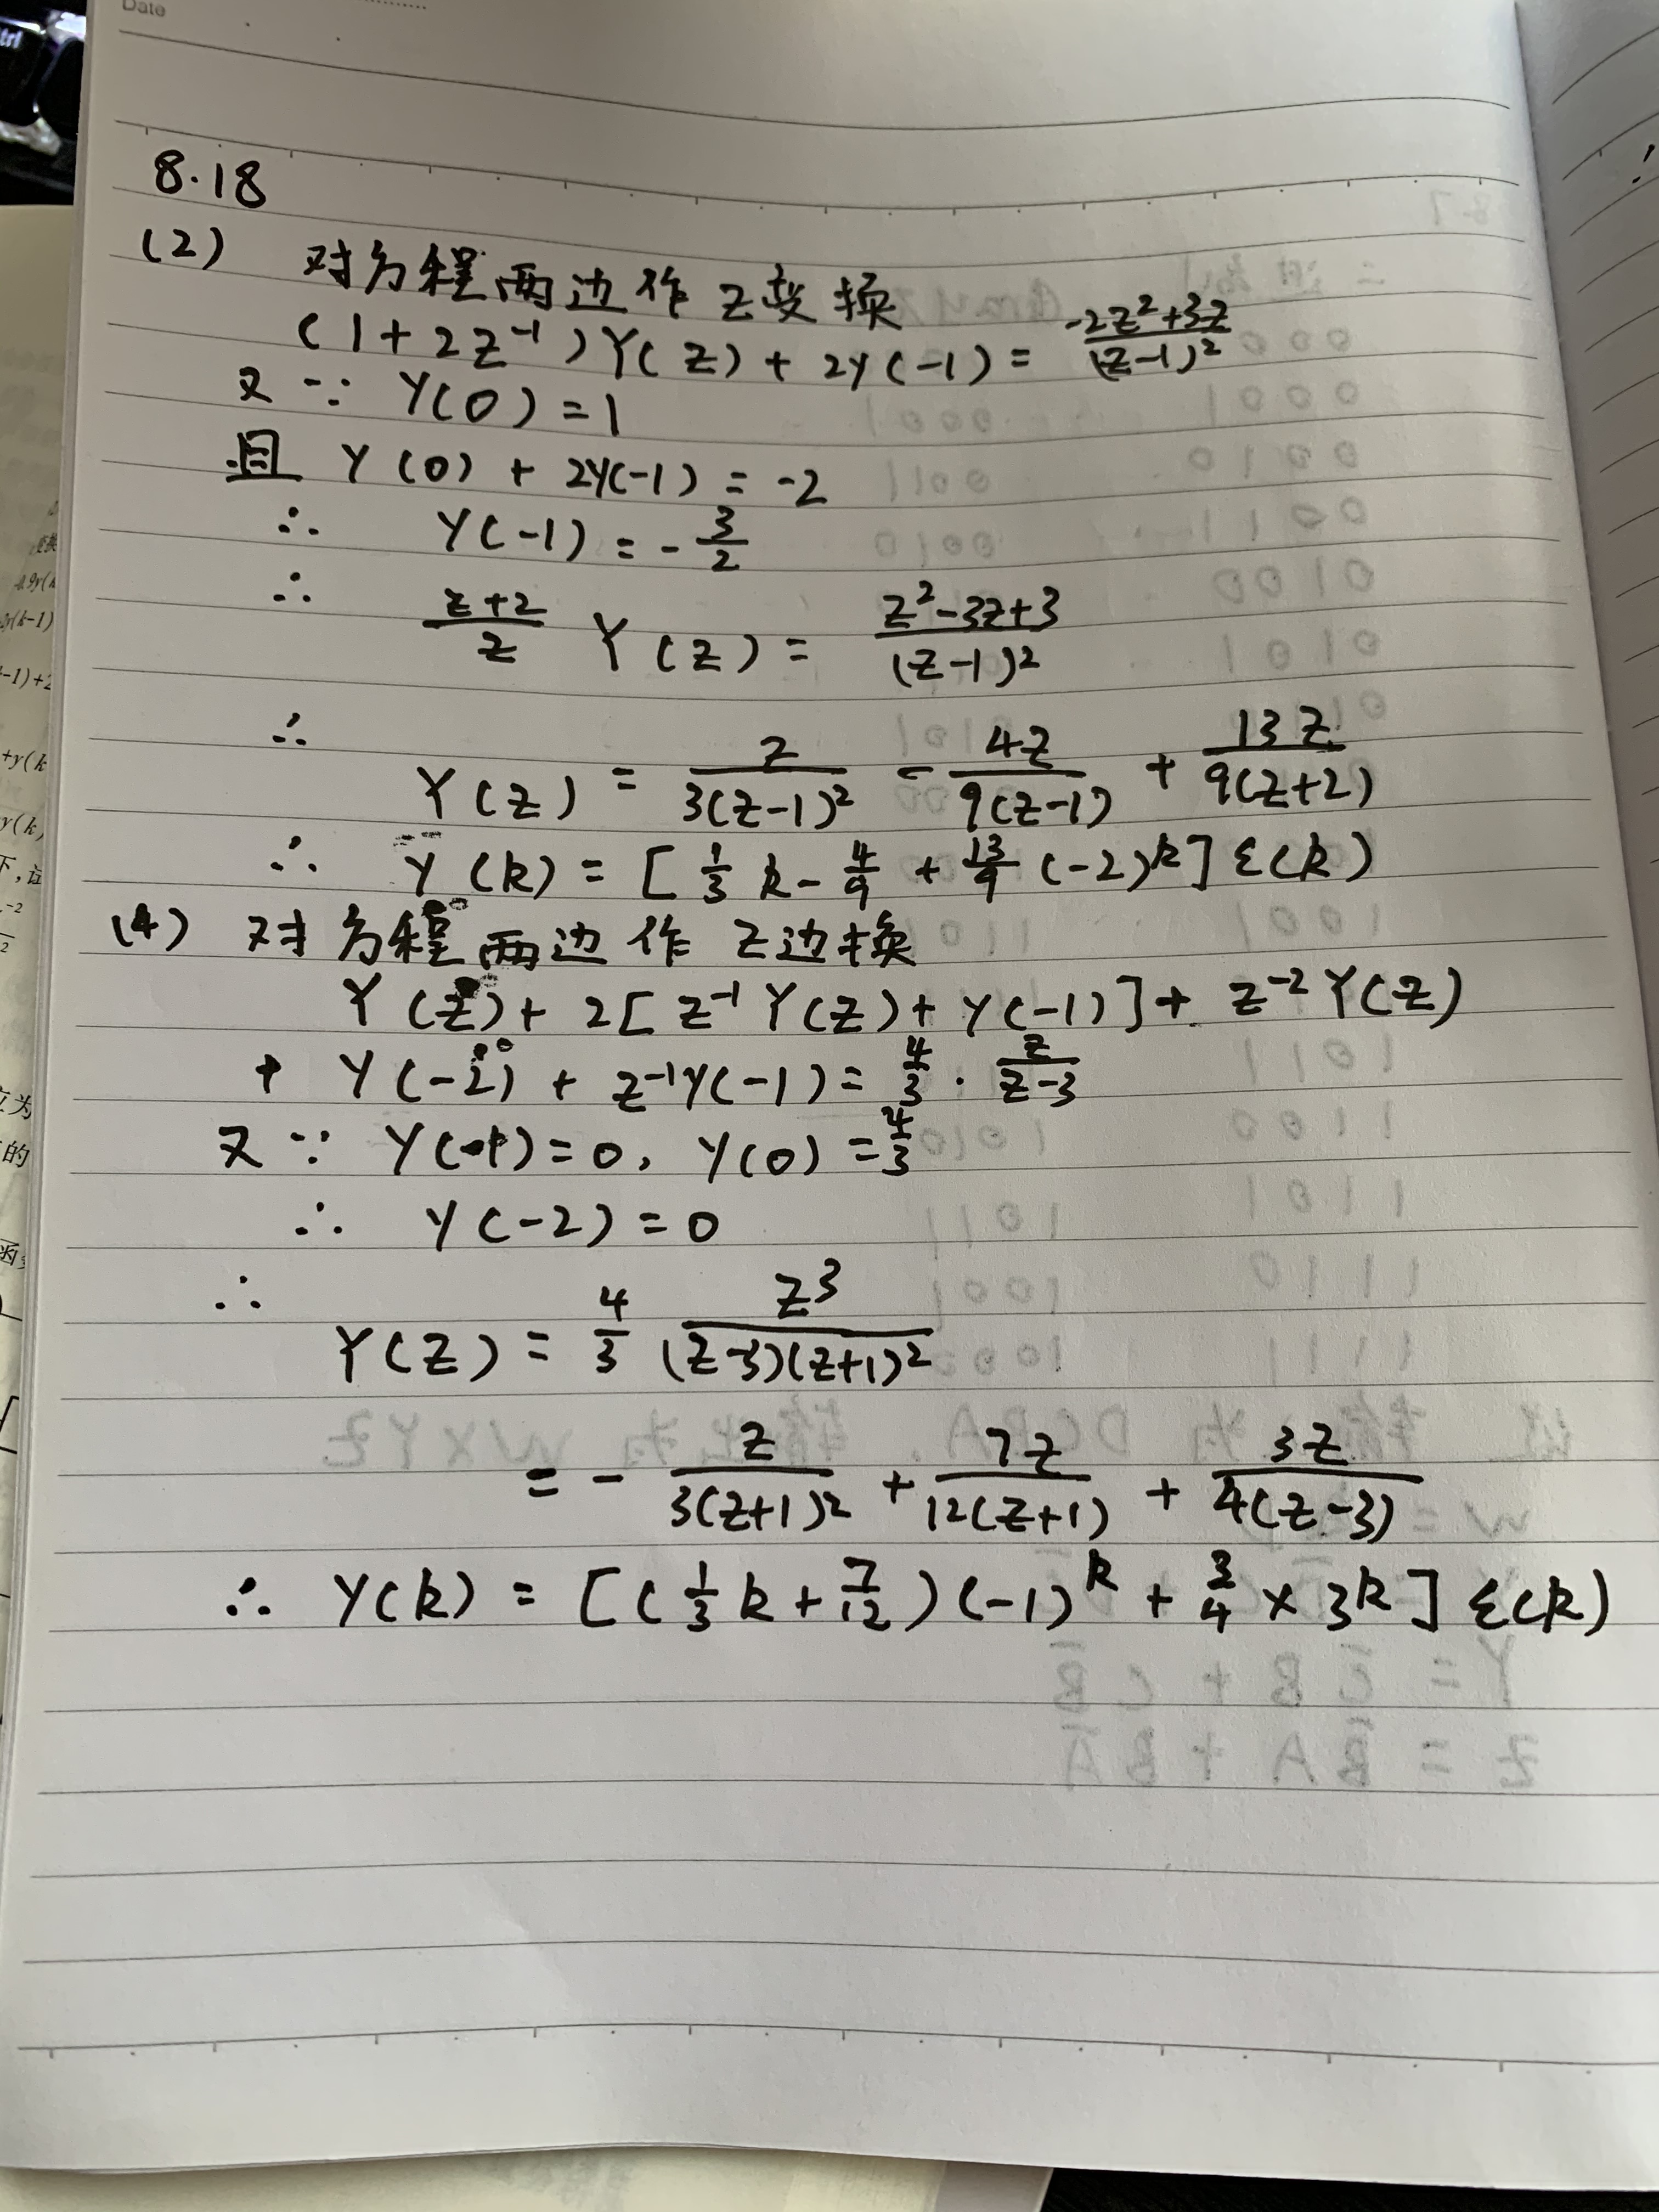 Date
8.18
(2) 对方程两边作Z变换
(1+2z⁻¹)Y(z)+2y(-1)= (-2z²+3z)/(z-1)²
又∵ Y(0)=1
且 Y(0)+2y(-1)=-2
∴ Y(-1)=-3/2
∴ (z+2)/z Y(z)= (z²-3z+3)/(z-1)²
∴ Y(z)= z/(3(z-1)²) - 4z/(9(z-1)) + 13z/(9(z+2))
∴ Y(k)=[1/3 k - 4/9 + 13/9 (-2)ᵏ]ε(k)
(4) 对方程两边作Z边换
Y(z)+2[z⁻¹Y(z)+y(-1)]+z⁻²Y(z)
+Y(-2)+z⁻¹y(-1)=4/3·z/(z-3)
又∵ Y(-1)=0, y(0)=4/3
∴ y(-2)=0
∴ Y(z)=4/3 z³/((z-3)(z+1)²)
=-z/(3(z+1)²)+7z/(12(z+1))+3z/(4(z-3))
∴ Y(k)=[(1/3 k+7/12)(-1)ᵏ+3/4×3ᵏ]ε(k)